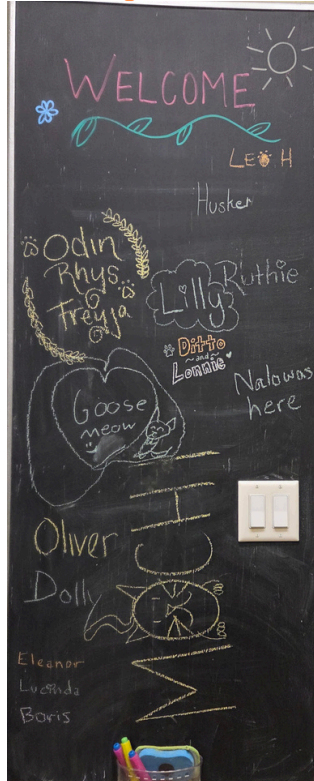 WELCOME
LEOH
Husker
Odin
Rhys
&
Freyja
Ruthie
Lilly
Ditto
and
Lonnie
Nala was
here
Goose
meow
MOCHI
Oliver
Dolly
Eleanor
Lucinda
Boris